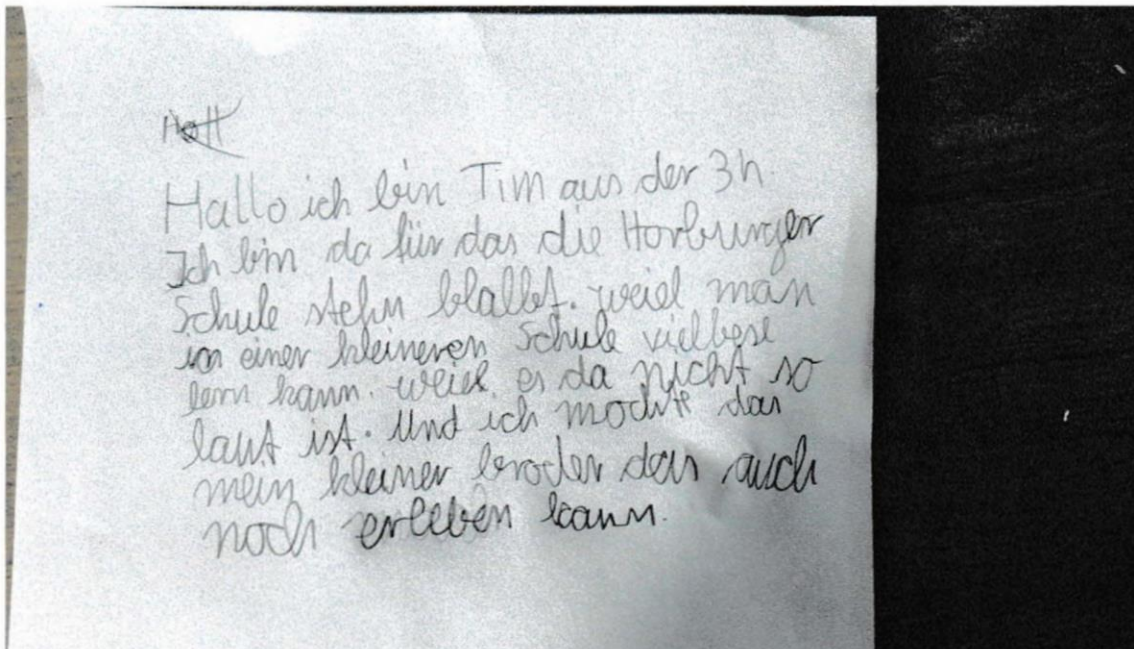 Hallo ich bin Tim aus der 3h.
Ich bin da für das die Horburger
Schule stehn blallbt. weiel man
in einer kleineren Schule vielbese
lern kann. weiel es da nicht so
laut ist. Und ich möchte das
mein kleiner broder das auch
noch erleben kann.